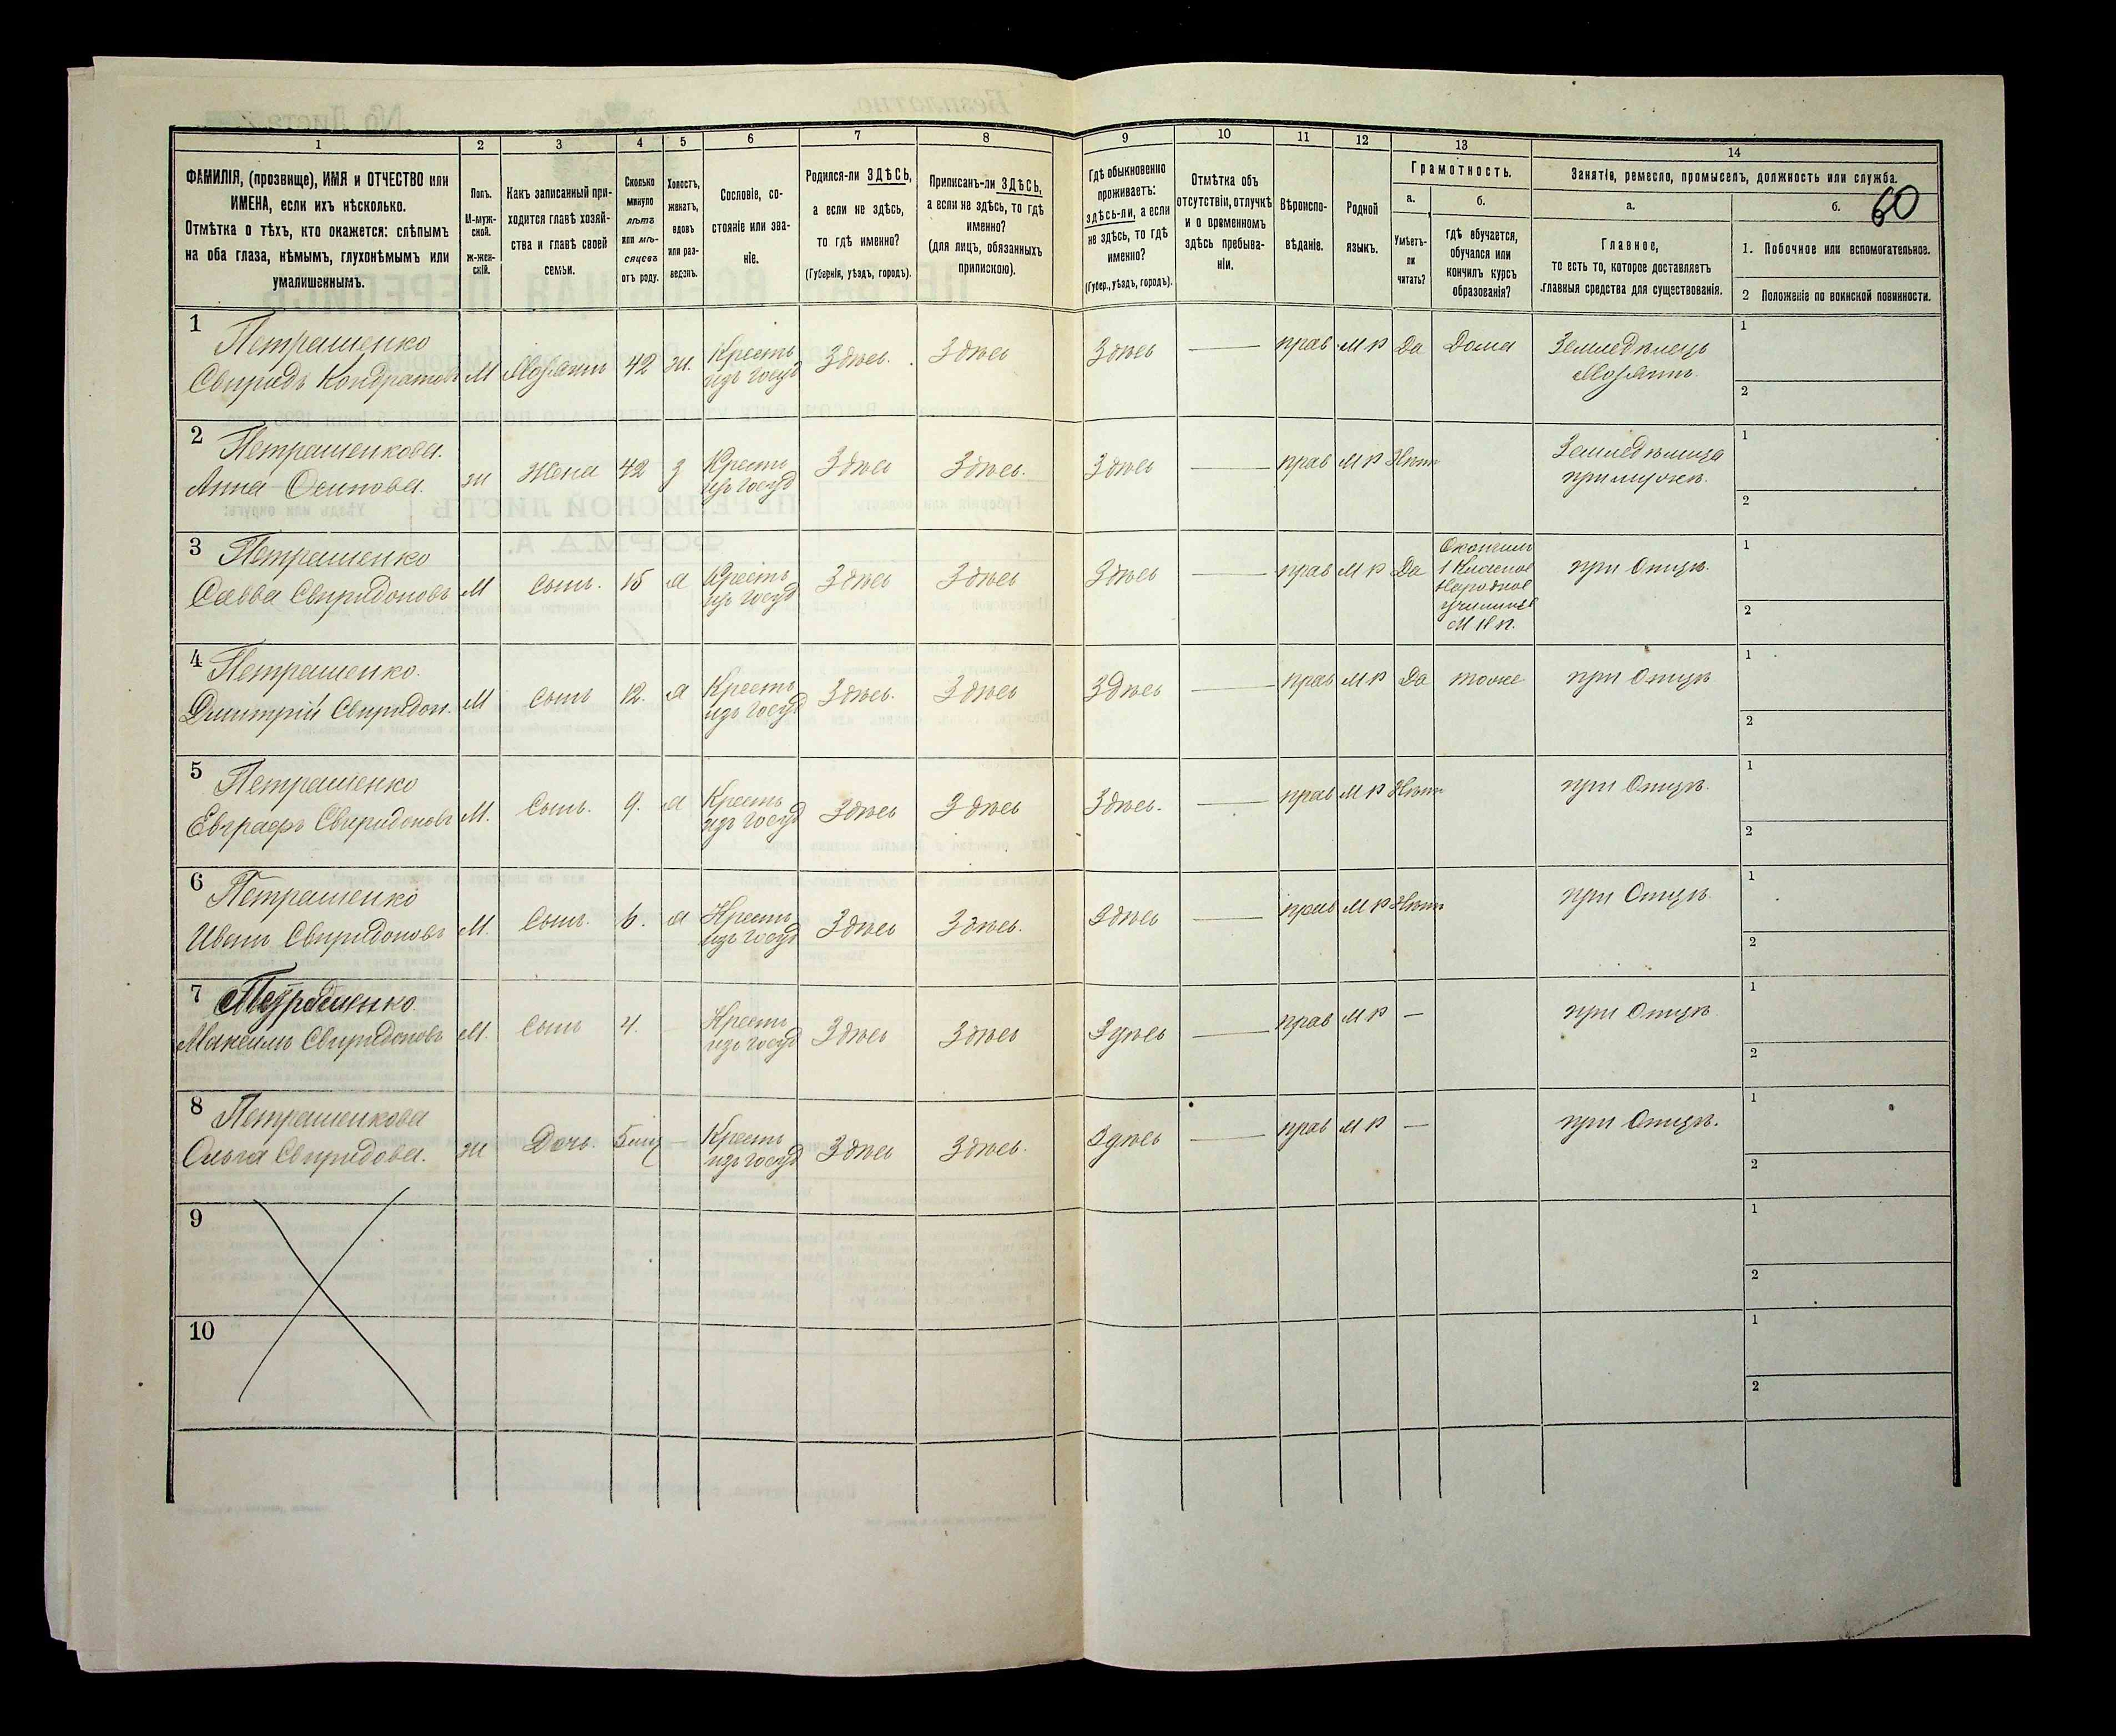 60
1
2
3
4
5
6
7
8
9
10
11
12
13
14
ФАМИЛІЯ, (прозвище), ИМЯ и ОТЧЕСТВО или
ИМЕНА, если ихъ нѣсколько.
Отмѣтка о тѣхъ, кто окажется: слѣпымъ
на оба глаза, нѣмымъ, глухонѣмымъ или
умалишеннымъ.
Полъ.
М-муж-
ской.
ж-жен-
скій.
Какъ записанный при-
ходится главѣ хозяй-
ства и главѣ своей
семьи.
Сколько
минуло
лѣтъ
или мѣ-
сяцевъ
отъ роду.
Холостъ,
женатъ,
вдовъ
или раз-
веденъ.
Сословіе, со-
стояніе или зва-
ніе.
Родился-ли ЗДѢСЬ,
а если не здѣсь,
то гдѣ именно?
(Губернія, уѣздъ, городъ).
Приписанъ-ли ЗДѢСЬ,
а если не здѣсь, то гдѣ
именно?
(для лицъ, обязанныхъ
припискою).
Гдѣ обыкновенно
проживаетъ:
здѣсь-ли, а если
не здѣсь, то гдѣ
именно?
(Губер., уѣздъ, городъ).
Отмѣтка объ
отсутствіи, отлучкѣ
и о временномъ
здѣсь пребыва-
ніи.
Вѣроиспо-
вѣданіе.
Родной
языкъ.
Грамотность.
а.
Умѣетъ-
ли
читать?
б.
Гдѣ обучается,
обучался или
кончилъ курсъ
образованія?
Занятіе, ремесло, промыселъ, должность или служба.
а.
Главное,
то есть то, которое доставляетъ
главныя средства для существованія.
б.
1. Побочное или вспомогательное.
2 Положеніе по воинской повинности.
1 Петрашенко
Свиридъ Кондратовъ М 42 ж. Кресть изъ госуд Здѣсь. Здѣсь Здѣсь — прав М Р Да Дома Земледѣлецъ
1
2
2 Петрашенкова.
Анна Осипова. ж Жена 42 з Кресть изъ госуд Здѣсь Здѣсь. Здѣсь — прав М Р Нѣтъ Земледѣлица
при мужѣ.
1
2
3 Петрашенко
Савва Свиридоновъ М Сынъ. 15 х Кресть изъ госуд Здѣсь Здѣсь Здѣсь — прав М Р Да
1 Класное
Народное
училище
М Н П.
при Отцѣ.
1
2
4 Петрашенко.
Дмитрій Свиридон. М Сынъ 12. х Кресть изъ госуд Здѣсь. Здѣсь Здѣсь — прав М Р Да тоже при Отцѣ
1
2
5 Петрашенко
Евграфъ Свиридоновъ М. Сынъ. 9. х Кресть изъ госуд Здѣсь Здѣсь Здѣсь. — прав М Р Нѣтъ при Отцѣ.
1
2
6 Петрашенко
Иванъ Свиридоновъ М. Сынъ. 6. х Кресть изъ госуд Здѣсь Здѣсь. Здѣсь — прав М Р Нѣтъ при Отцѣ.
1
2
7 Петрашенко.
Максимъ Свиридоновъ М. Сынъ 4. Кресть изъ госуд Здѣсь Здѣсь Здѣсь — прав М Р — при Отцѣ.
1
2
8 Петрашенкова
Ольга Свиридова. ж Дочь. 5 мц — Кресть изъ госуд Здѣсь Здѣсь. Здѣсь — прав М Р — при Отцѣ.
1
2
9
1
2
10
1
2